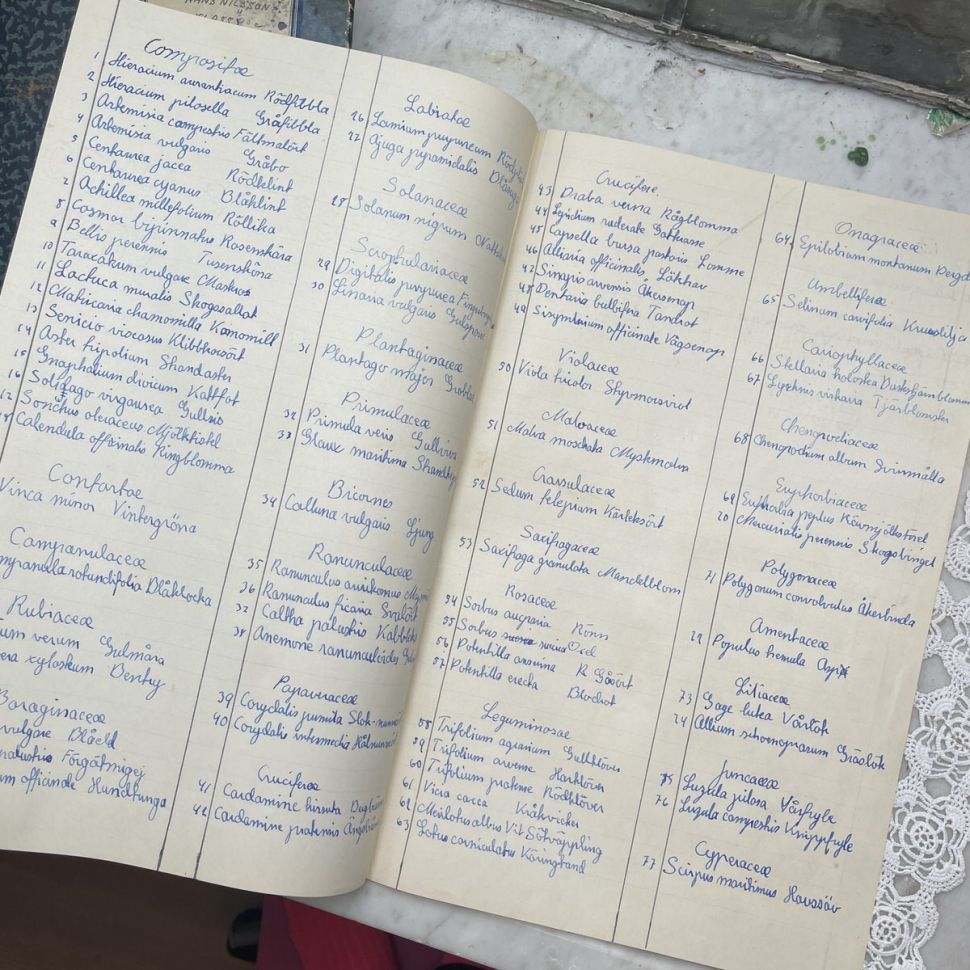 HANS NILSSON
Compositae
1 Hieracium aurantiacum Rödfibbla
2 Hieracium pilosella Gråfibbla
3 Artemisia campestris Fältmalört
4 Artemisia vulgaris Gråbo
5 Centaurea jacea Rödklint
6 Centaurea cyanus Blåklint
7 Achillea millefolium Röllika
8 Cosmos bipinnatus Rosenskära
9 Bellis perennis Tusensköna
10 Taraxakum vulgare Maskros
11 Lactuca muralis Skogssallat
12 Matricaria chamomilla Kamomill
13 Senicio viscosus Klibbkorsört
14 Aster tripolium Strandaster
15 Gnaphalium dioicum Kattfot
16 Solidago virgaurea Gullris
17 Sonchus oleraceus Mjölktistel
18 Calendula officinalis Ringblomma
Contortae
Vinca minor Vintergröna
Campanulaceae
mpanula rotundifolia Blåklocka
Rubiaceae
um verum Gulmåra
era xylosteum Bentry
Boraginaceae
vulgare Blåeld
palustris Förgätmigej
um officinale Hundtunga
Labiatae
26 Lamium purpureum
27 Ajuga pyramidalis
Solanaceae
28 Solanum nigrum
Scrophulariaceae
29 Digitalis purpurea
30 Linaria vulgaris
Plantaginaceae
31 Plantago major
Primulaceae
32 Primula veris Gullviva
33 Glaux maritima
Bicornes
34 Calluna vulgaris Ljung
Ranunculaceae
35 Ranunculus auricomus
36 Ranunculus ficaria Svalört
37 Caltha palustris
38 Anemone ranunculoides
Papaveraceae
39 Corydalis pumila
40 Corydalis intermedia
Cruciferae
41 Cardamine hirsuta
42 Cardamine pratensis
Cruciferae
43 Draba verna Rågblomma
44 Lepidium ruderale Gatkrasse
45 Capsella bursa pastoris Lomme
46 Alliaria officinalis Lökträv
47 Sinapis arvensis Åkersenap
48 Dentaria bulbifera Tandrot
49 Sisymbrium officinale Vägsenap
Violaceae
50 Viola tricolor Styvmorsviol
Malvaceae
51 Malva moschata Myskmalva
Crassulaceae
52 Sedum telepium Kärleksört
Saxifragaceae
53 Saxifraga granulata Mandelblom
Rosaceae
54 Sorbus aucuparia Rönn
55 Sorbus suecica Oxel
56 Potentilla anserina Gåsört
57 Potentilla erecta Blodrot
Leguminosae
58 Trifolium agrarium Gullklöver
59 Trifolium arvense Harklöver
60 Trifolium pratense Rödklöver
61 Vicia cracca Kråkvicker
62 Melilotus albus Vit Sötväppling
63 Lotus corniculatus Käringtand
Onagraceae
64 Epilobium montanum
Umbelliferae
65 Selinum carvifolia Krusilja
Cariophyllaceae
66 Stellaria holostea Buskstjärnblomma
67 Lychnis viskaria Tjärblomster
Chenopodiaceae
68 Chenopodium album Svinmålla
Euphorbiaceae
69 Euphorbia peplus
70 Mercurialis perennis Skogsbingel
Polygonaceae
71 Polygonum convolvulus Åkerbinda
Amentaceae
72 Populus tremula Asp
Liliaceae
73 Gagea lutea Vårlök
74 Allium schoenoprasum Gräslök
Juncaceae
75 Luzula pilosa Vårfryle
76 Luzula campestris Knippfryle
Cyperaceae
77 Scirpus maritimus Havssäv